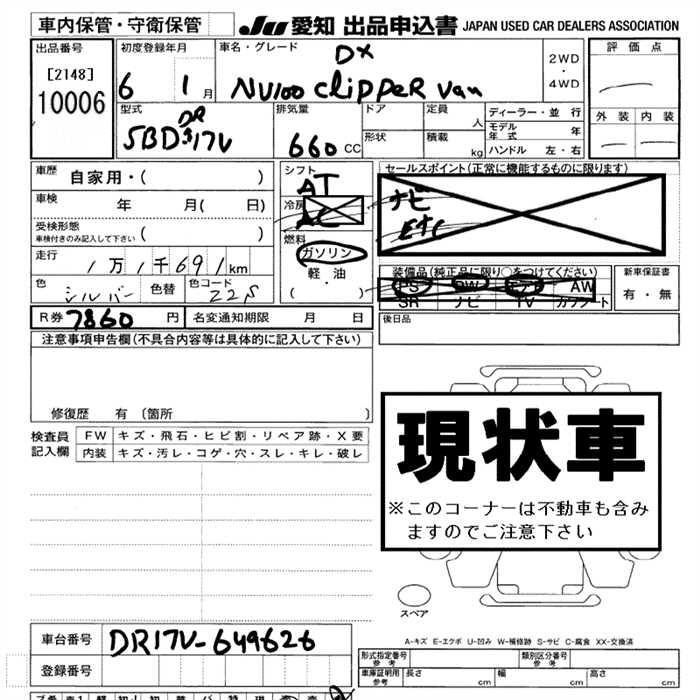 車内保管・守衛保管
JU 愛知 出品申込書 JAPAN USED CAR DEALERS ASSOCIATION
出品番号
[2148]
10006
初度登録年月
6 1 月
車名・グレード
DX
NV100 CLIPPER Van
2WD
・
4WD
評価点
外装 内装
型式
5BD DR17V
排気量
660 CC
ドア
形状
定員
人
積載
kg
ディーラー・並行
モデル年式 年
ハンドル 左・右
車歴 自家用・( )
車検 年 月( 日)
受検形態
車検付きのみ記入して下さい ( )
走行
1万1千691km
色 シルバー 色替 色コード Z2S
シフト
AT
冷房
AC
燃料
ガソリン
軽油
( )
セールスポイント(正常に機能するものに限ります)
ナビ
ETC
装備品(純正品に限り○をつけてください)
PS PW エアB AW
SR ナビ TV カワシート
新車保証書
有・無
R券 7860 円 名変通知期限 月 日
後日品
注意事項申告欄(不具合内容等は具体的に記入して下さい)
修復歴 有 〔箇所 〕
検査員 FW キズ・飛石・ヒビ割・リペア跡・X要
記入欄 内装 キズ・汚レ・コゲ・穴・スレ・キレ・破レ
現状車
※このコーナーは不動車も含み
ますのでご注意下さい
スペア
A-キズ E-エクボ U-凹み W-補修跡 S-サビ C-腐食 XX-交換済
車台番号 DR17V-649626
登録番号
形式指定番号
参考
類別区分番号
参考
車庫証明用
参考
長さ cm 幅 cm 高さ cm